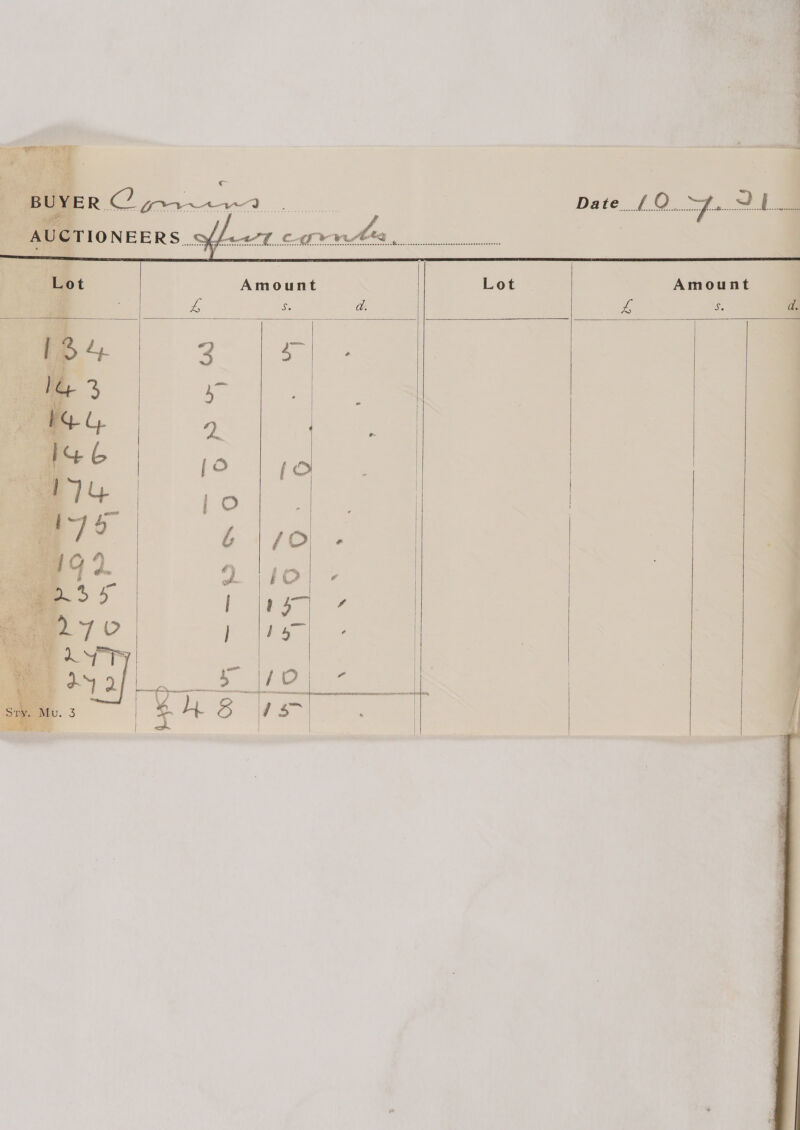 BUYER Date 10.7.31
AUCTIONEERS
Lot Amount Lot Amount
£ s. d. £ s. d.
134 3 5 -
143 5 - -
144 2 - -
146 10 10 -
174 10 - -
175 6 10 -
192 2 10 -
235 1 15 -
270 1 15 -
271
272 5 10 -
Sry. Mu. 3 £48 15 -